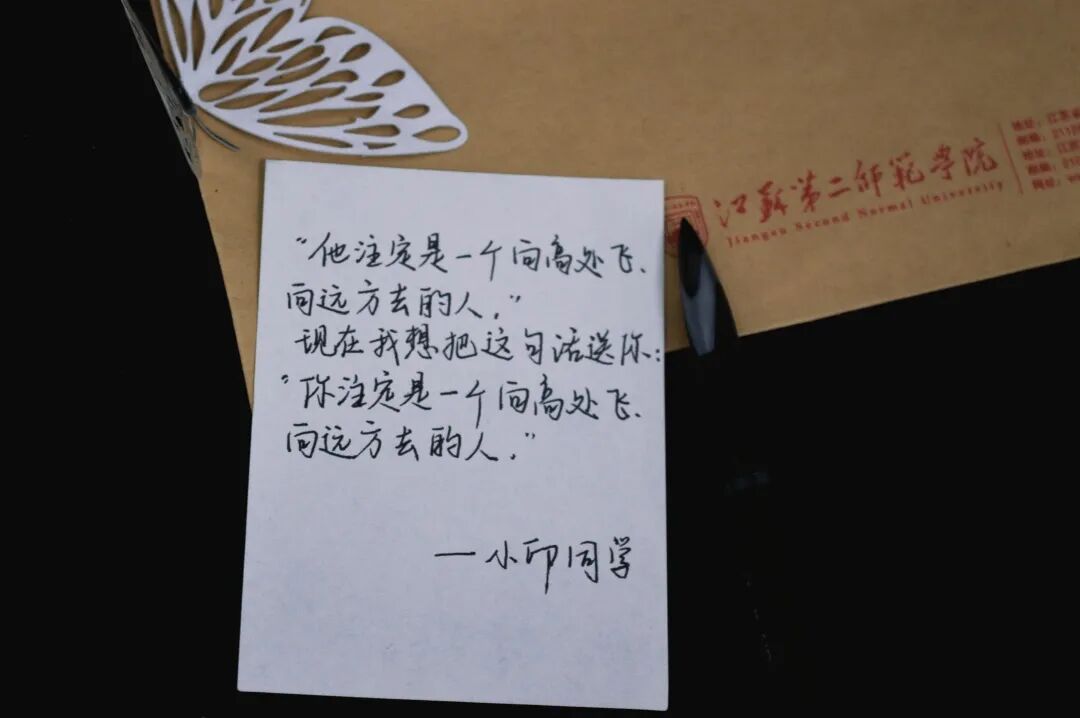 “他注定是一个向高处飞、
向远方去的人.”
现在我想把这句话送你：
“你注定是一个向高处飞、
向远方去的人.”
—小印同学
江苏第二师范学院
Jiangsu Second Normal University
地址：江苏
邮编：
地址：江苏
邮编：
网址：